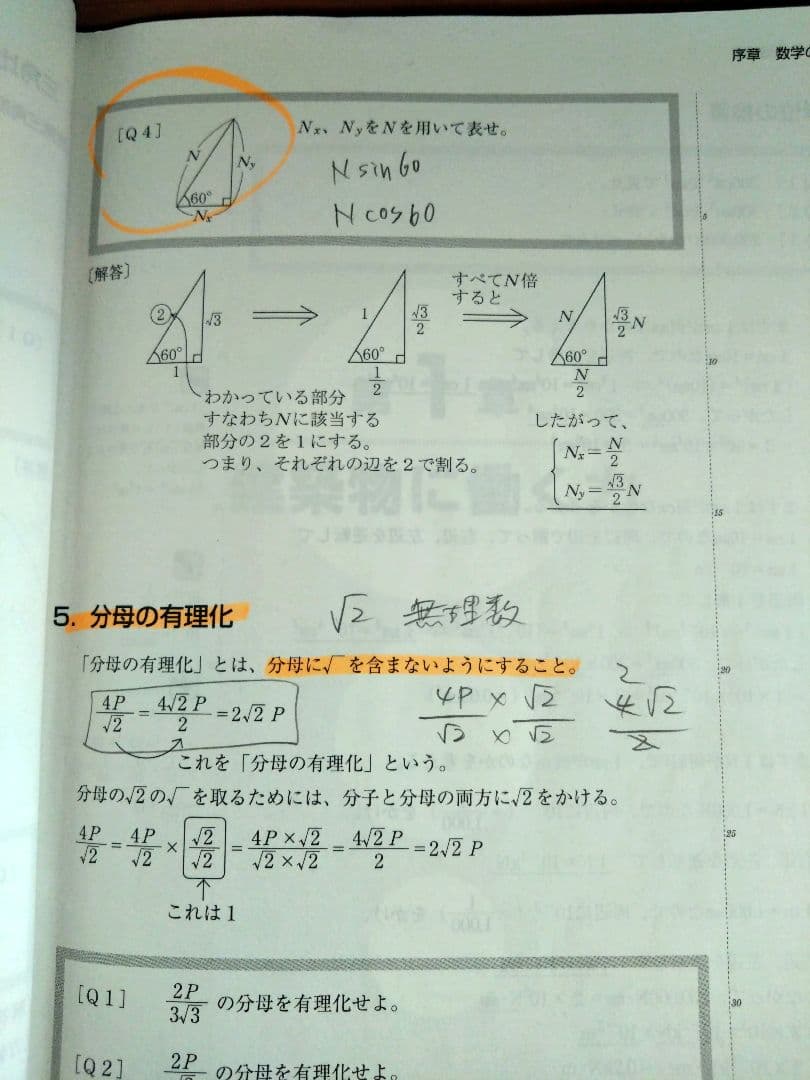 序章 数学の
[Q4]
Nx、NyをNを用いて表せ。
N
Ny
60°
Nx
N sin 60
N cos 60
5
〔解答〕
② √3 60° 1
1 √3/2 60° 1/2
すべてN倍
すると
N √3/2 N 60° N/2
10
わかっている部分
すなわちNに該当する
部分の2を1にする。
つまり、それぞれの辺を2で割る。
したがって、
Nx=N/2
Ny=√3/2 N
15
5. 分母の有理化
√2 無理数
「分母の有理化」とは、分母に√ を含まないようにすること。
20
4P/√2=4√2 P/2=2√2 P
4P/√2 × √2/√2
2
4√2/2
これを「分母の有理化」という。
分母の√2の√ を取るためには、分子と分母の両方に√2をかける。
25
4P/√2=4P/√2×√2/√2=4P×√2/√2×√2=4√2 P/2=2√2 P
これは1
[Q1] 2P/3√3 の分母を有理化せよ。
30
[Q2] 2P の分母を有理化せよ。